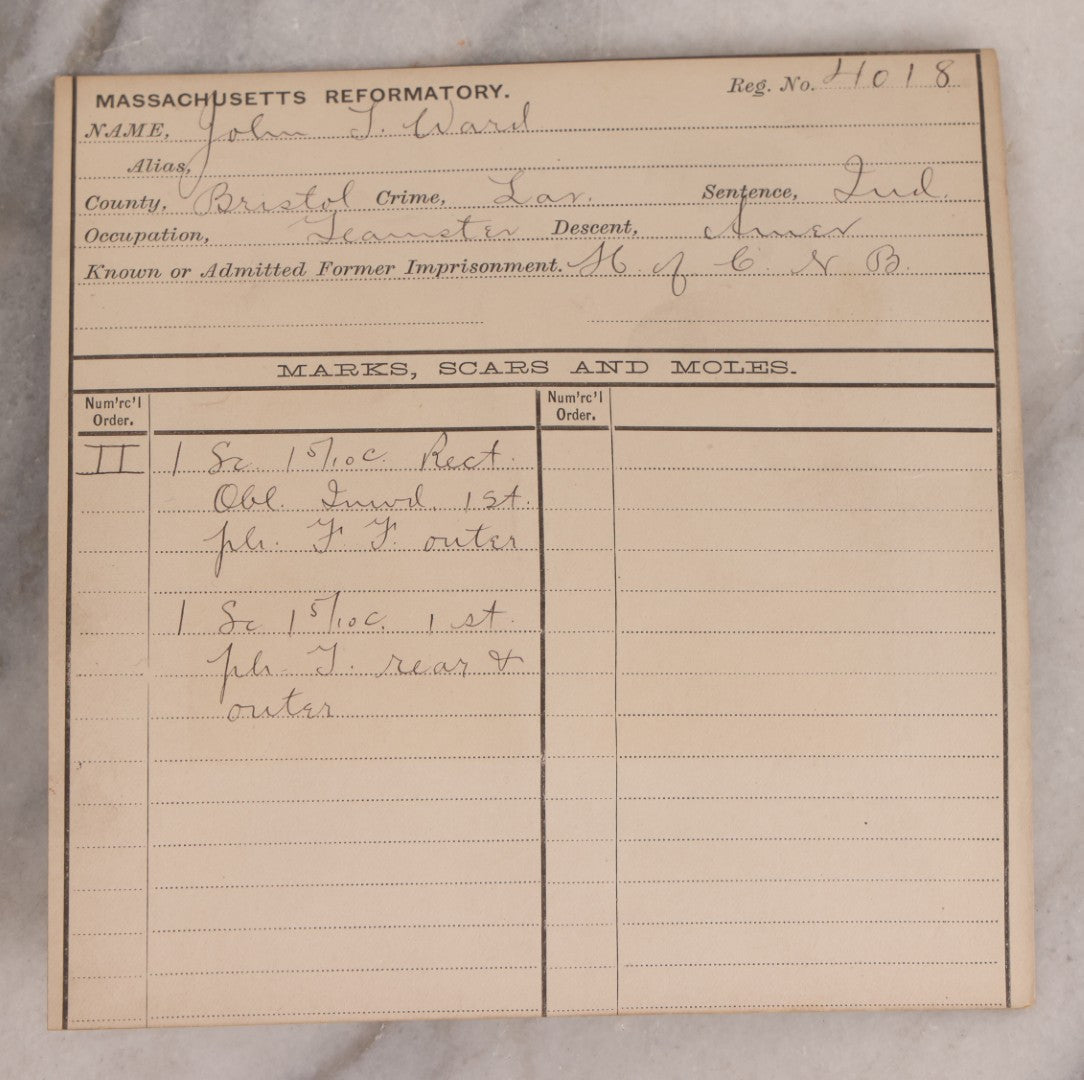 MASSACHUSETTS REFORMATORY. Reg. No. 4018
NAME, John T. Ward
Alias,
County, Bristol Crime, Lar. Sentence, Ind.
Occupation, Teamster Descent, Amer
Known or Admitted Former Imprisonment. H. of C. N B.
MARKS, SCARS AND MOLES.
Num'rc'l Order. Num'rc'l Order.
II 1 Sc. 1 5/10 c. Rect.
Obl. Inwd. 1 st.
ph. F F. outer
1 Sc 1 5/10 c. 1 st.
ph. T. rear &
outer